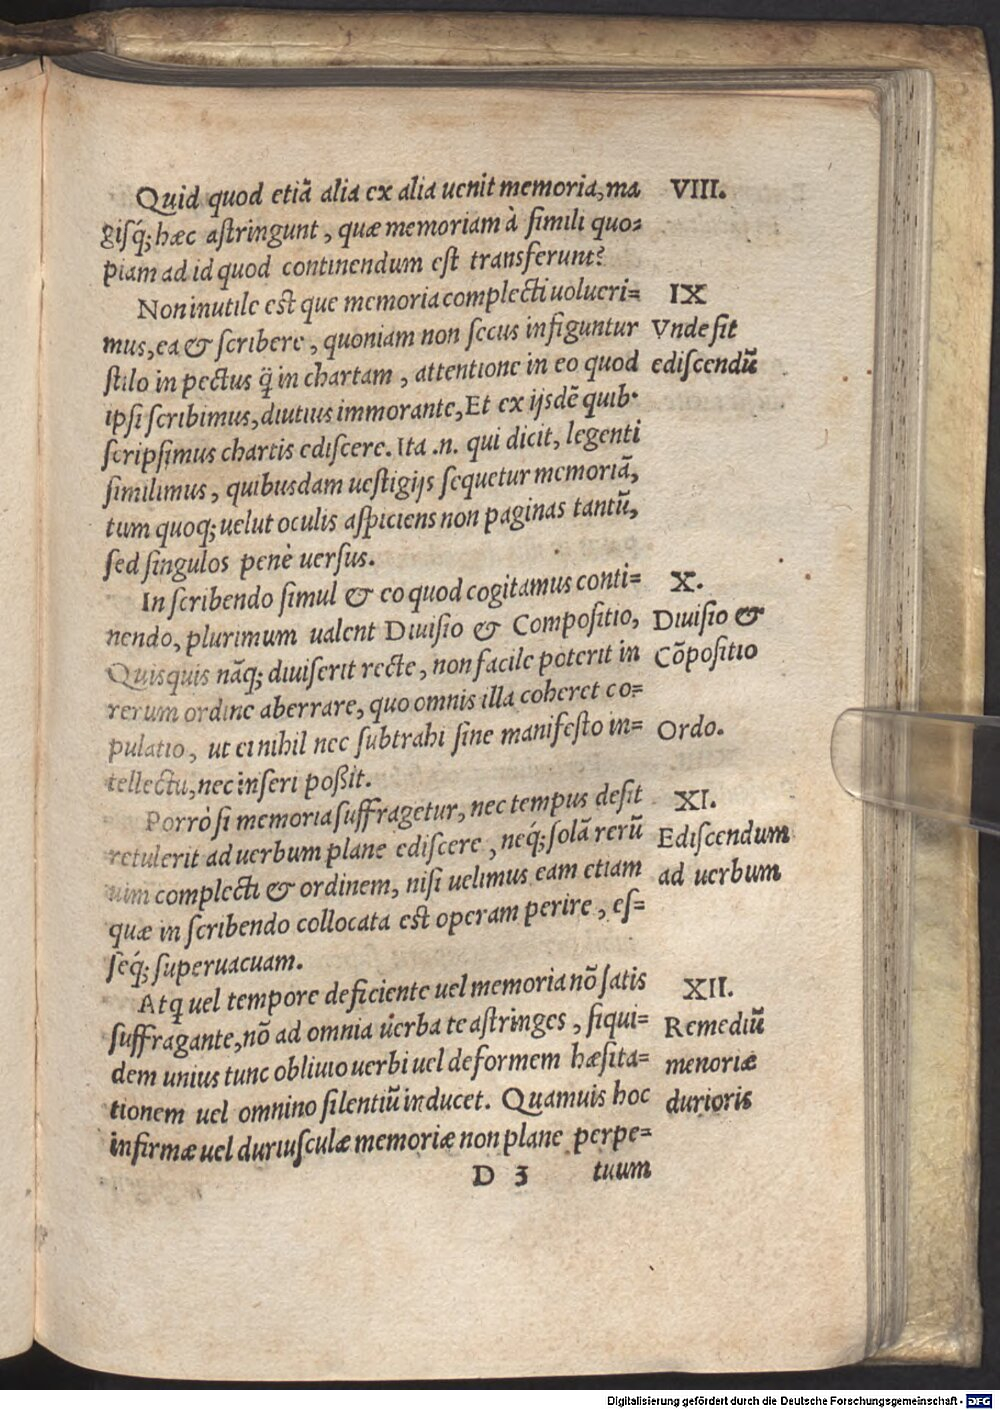 Quid quod etiã alia ex alia uenit memoria, ma VIII.
gisq́; hæc astringunt, quæ memoriam à simili quo=
piam ad id quod continendum est transferunt?
Non inutile est que memoria complecti uolueri= IX
mus, ea & scribere, quoniam non secus infiguntur Vnde sit
stilo in pectus q̃ in chartam, attentione in eo quod ediscendũ
ipsi scribimus, diutius immorante, Et ex ijsdẽ quib·
scripsimus chartis ediscere. Ita .n. qui dicit, legenti
similimus, quibusdam uestigijs sequetur memoriã,
tum quoq; uelut oculis aspiciens non paginas tantũ,
sed singulos penè uersus.
In scribendo simul & eo quod cogitamus conti= X.
nendo, plurimum ualent Diuisio & Compositio, Diuisio &
Quisquis nãq; diuiserit recte, non facile poterit in Cõpositio
rerum ordine aberrare, quo omnis illa coheret co=
pulatio, ut ei nihil nec subtrahi sine manifesto in= Ordo.
tellectu, nec inseri poßit.
Porrò si memoria suffragetur, nec tempus desit XI.
retulerit ad uerbum plane ediscere, neq́; solã rerũ Ediscendum
uim complecti & ordinem, nisi uelimus eam etiam ad uerbum
quæ in scribendo collocata est operam perire, es=
seq́; superuacuam.
Atq uel tempore deficiente uel memoria nõ satis XII.
suffragante, nõ ad omnia uerba te astringes, siqui= Remediũ
dem unius tunc obliuio uerbi uel deformem hæsita= menoriæ
tionem uel omnino silentiũ inducet. Quamuis hoc durioris
infirmæ uel duriusculæ memoriæ non plane perpe=
D 3 tuum
Digitalisierung gefördert durch die Deutsche Forschungsgemeinschaft - DFG